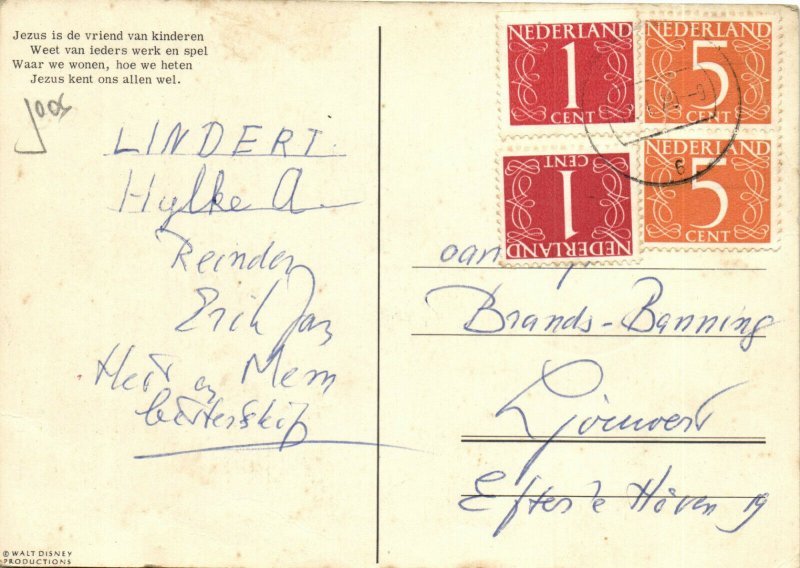 Jezus is de vriend van kinderen
Weet van ieders werk en spel
Waar we wonen, hoe we heten
Jezus kent ons allen wel.
LINDERT
Hylke A
Reinder
Erik Jan
Heit en Mem
beterskip
© WALT DISNEY
PRODUCTIONS
NEDERLAND
1
CENT
NEDERLAND
5
CENT
NEDERLAND
1
CENT
NEDERLAND
5
CENT
6
aan
Brands-Banning
Efter'e Hôven 19